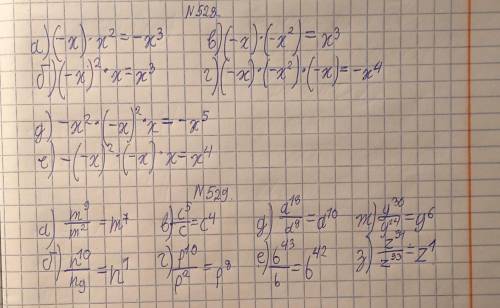 №528.
а) (-x) · x² = -x³ в) (-x) · (-x²) = x³
б) (-x)² · x = x³ г) (-x) · (-x²) · (-x) = -x⁴
д) -x² · (-x)² · x = -x⁵
е) -(-x)² · (-x) · x = x⁴
№529.
а) m⁹/m² = m⁷ в) c⁵/c = c⁴ д) d¹⁸/d⁸ = d¹⁰ ж) y³⁰/y²⁴ = y⁶
б) n¹⁰/n9 = n¹ г) p¹⁰/p² = p⁸ е) b⁴³/b = b⁴² з) z³⁴/z³³ = z¹